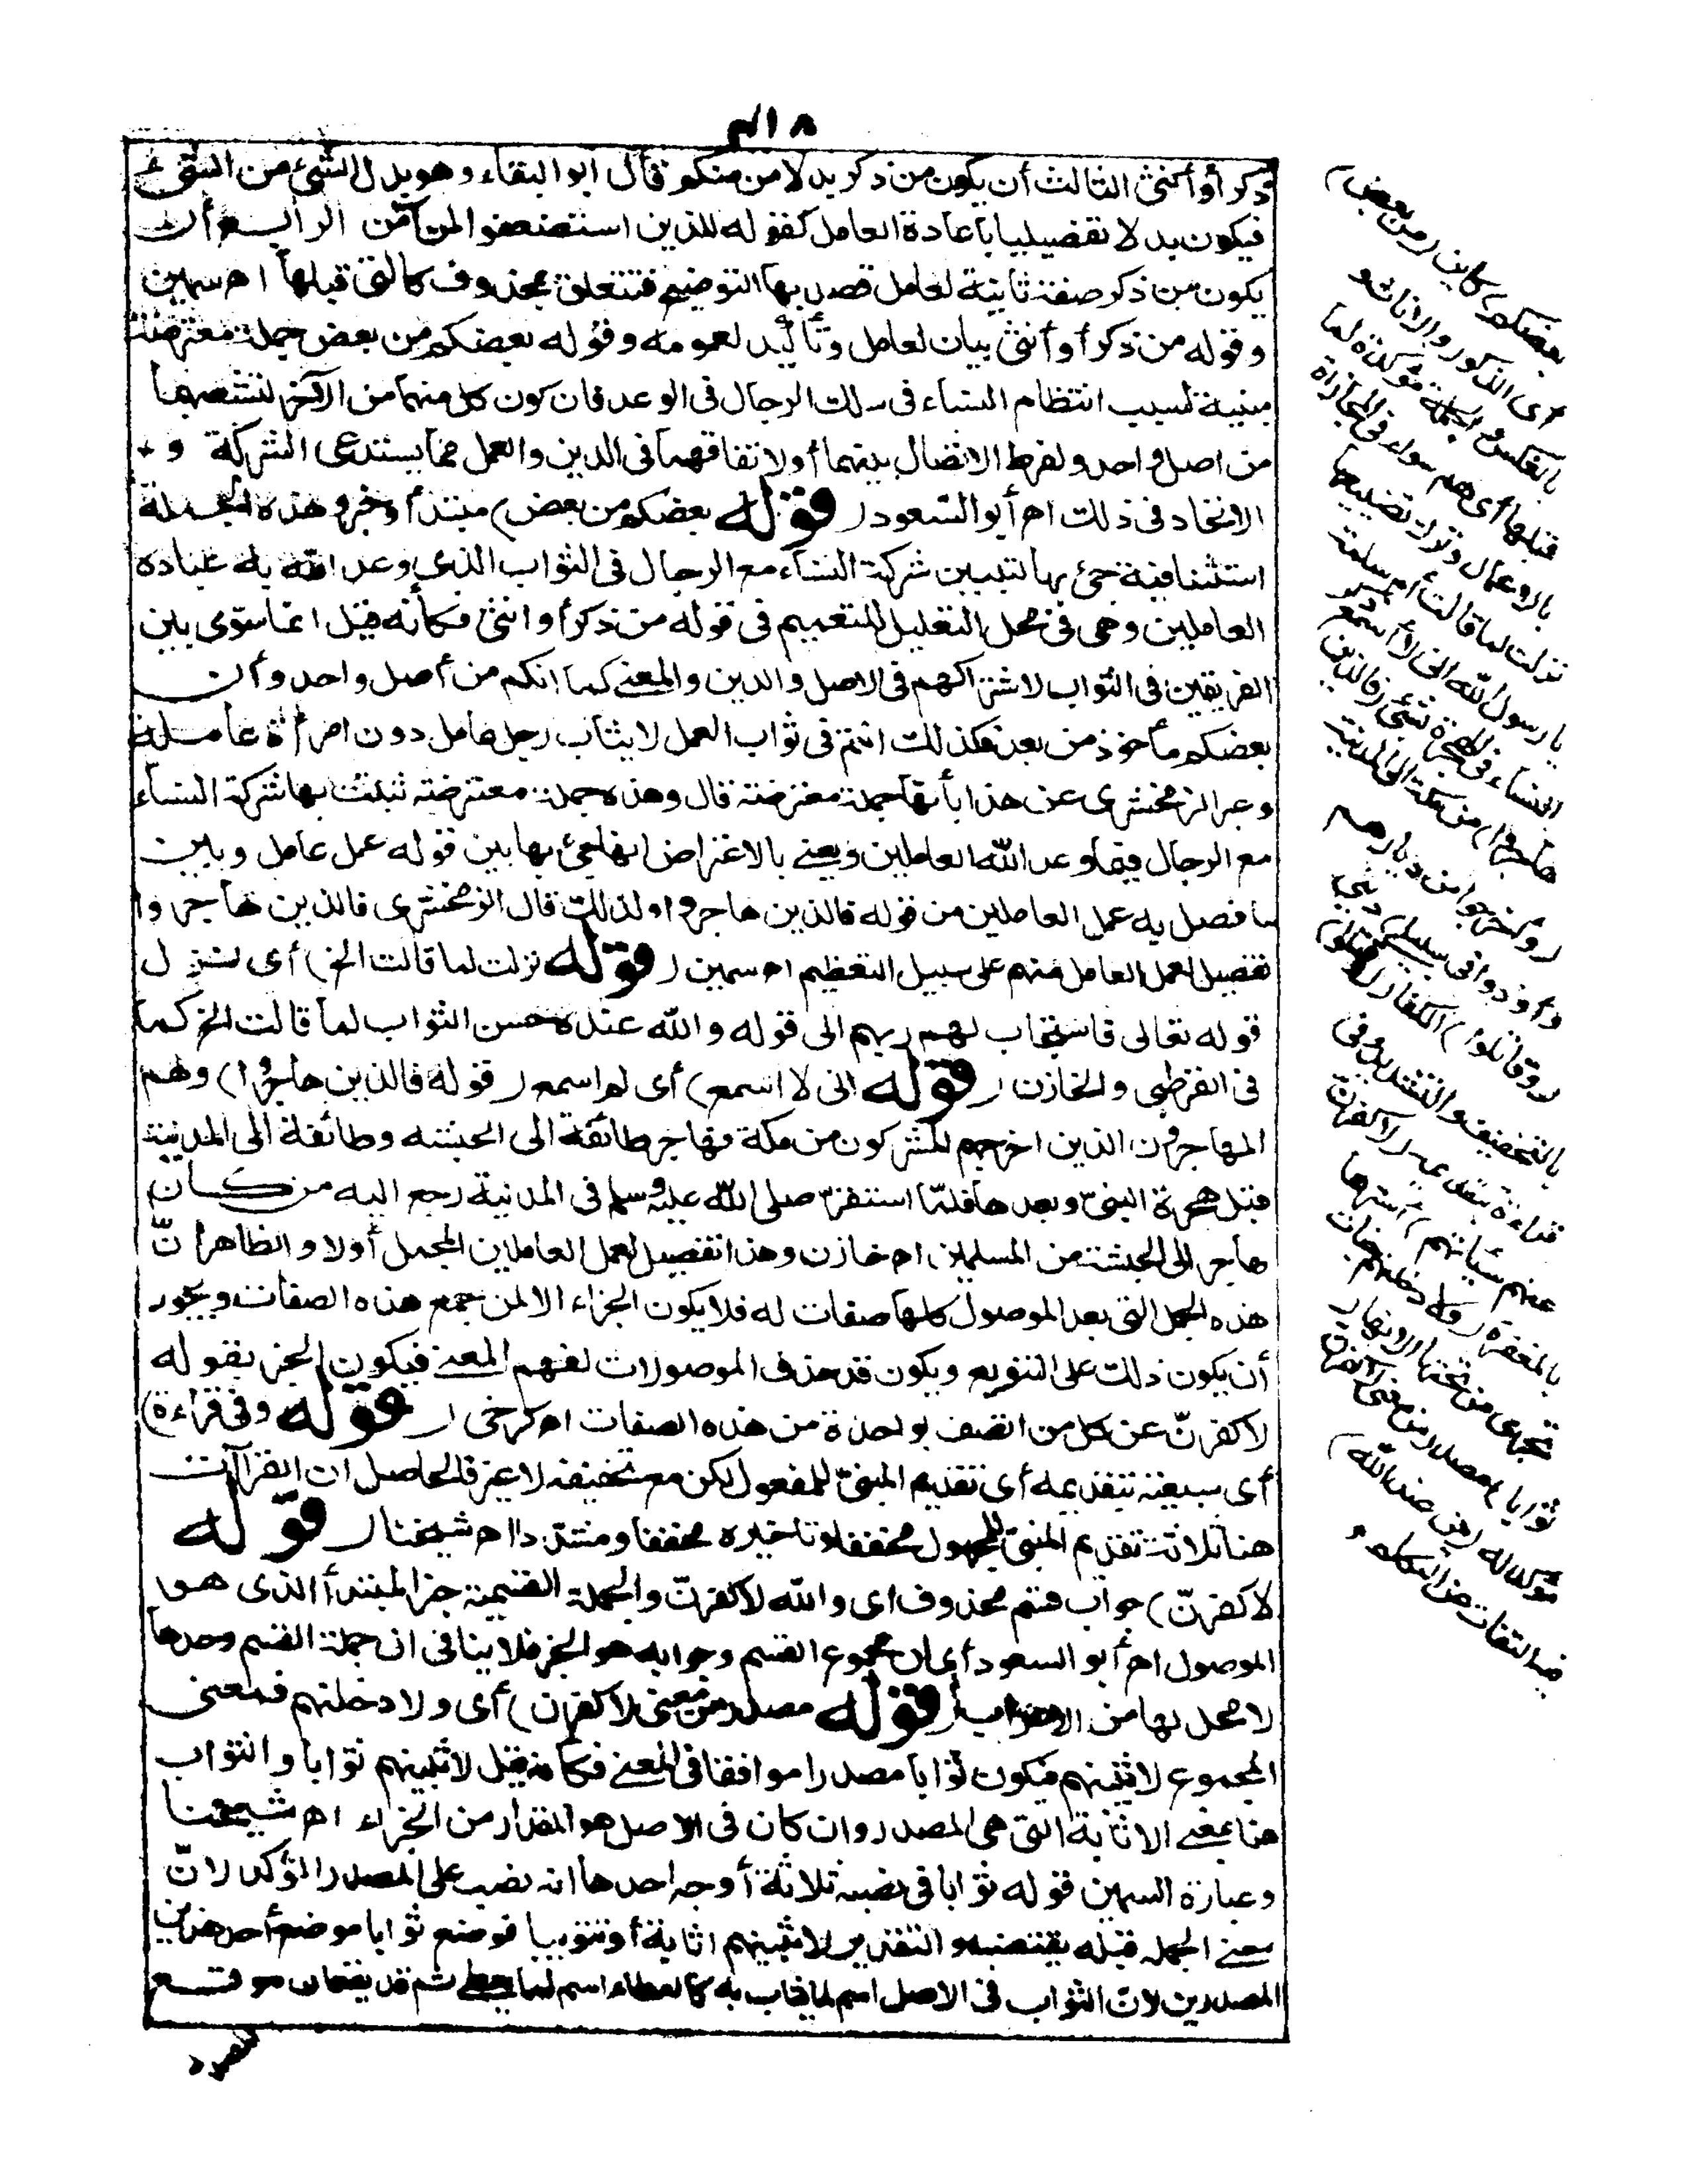 ٤١٨
ذكر أو أنثى الثالث أن يكون من ذكر بدلا من منكم قال ابو البقاء وهو بدل الشئ من الشئ
فيكون بدلا تفصيليا باعادة العامل كقوله للذين استضعفوا لمن آمن الرابع أن
يكون من ذكر صفة ثانية لعامل قصد بها التوضيح فتتعلق بمحذوف كالتى قبلها اه سمين
وقوله من ذكر أو أنثى بيان لعامل وتأكيد لعمومه وقوله بعضكم من بعض جملة معترضة
مبينة لسبب انتظام النساء فى سلك الرجال فى الوعد فان كون كل منهما من الآخر لتشعبهما
من اصل واحد ولفرط الاتصال بينهما أو لاتفاقهما فى الدين والعمل مما يستدعى الشركة و
الاتحاد فى ذلك اه أبو السعود (قوله بعضكم من بعض) مبتدأ وخبر وهذه الجملة
استئنافية جئ بها لتبيين شركة النساء مع الرجال فى الثواب الذى وعد الله به عباده
العاملين وهى فى محل التعليل للتعميم فى قوله من ذكر أو انثى فكأنه قيل انما سوّى بين
الفريقين فى الثواب لاشتراكهم فى الاصل والدين والمعنى كما انكم من أصل واحد وأن
بعضكم مأخوذ من بعض فكذلك انتم فى ثواب العمل لا يثاب رجل عامل دون امرأة عاملة
وعبر الزمخشرى عن هذا بأنها جملة معترضة قال وهذه جملة معترضة ثبتت بها شركة النساء
مع الرجال فيما وعد الله العاملين ويعنى بالاعتراض انها جئ بها بين قوله عمل عامل وبين
ما فصل به عمل العاملين من قوله فالذين هاجروا ولذلك قال الزمخشرى فالذين هاجروا
تفصيل لعمل العامل منهم على سبيل التعظيم اه سمين (قوله نزلت لما قالت الخ) أى نزل
قوله تعالى فاستجاب لهم ربهم الى قوله والله عنده حسن الثواب لما قالت الخ كما
فى القرطبى والخازن (قوله انى لا اسمع) أى لم اسمع (قوله فالذين هاجروا) وهم
المهاجرون الذين اخرجهم المشركون من مكة فهاجر طائفة الى الحبشة وطائفة الى المدينة
قبل هجرة النبىّ وبعدها فلمّا استقرّ صلى الله عليه وسلم فى المدينة رجع اليه من كان
هاجر الى الحبشة من المسلمين اه خازن وهذا تفصيل لعمل العاملين المجمل أولا والظاهر انّ
هذه الجمل التى بعد الموصول كلها صفات له فلا يكون الجزاء الا لمن جمع هذه الصفات ويجوز
أن يكون ذلك على التنويع ويكون قد حذف الموصولات لفهم المعنى فيكون الخبر بقوله
لاكفرنّ عن كل من اتصف بواحدة من هذه الصفات اه كرخى (قوله وفى قراءة)
أى سبعية بتقديمه أى تقديم المبنىّ للمفعول لكن مع تخفيفه لا غير فالحاصل ان القراآت
هنا ثلاثة تقديم المبنىّ للمجهول مخففا وتاخيره مخففا ومشدّدا اه شيخنا (قوله
لاكفرنّ) جواب قسم محذوف اى والله لاكفرنّ والجملة القسمية خبر المبتدأ الذى هو
الموصول اه أبو السعود أى ان مجموع القسم وجوابه هو الخبر فلا ينافى ان جملة القسم وحدها
لا محل لها من الاعراب (قوله مصدر من معنى لاكفرن) أى ولادخلنهم فمعنى
المجموع لاثيبنهم فيكون ثوابا مصدرا موافقا فى المعنى فكأنه قيل لاثيبنهم ثوابا والثواب
هنا بمعنى الاثابة التى هى المصدر وان كان فى الاصل هو المقدار من الجزاء اه شيخنا
وعبارة السمين قوله ثوابا فى نصبه ثلاثة أوجه احدها انه نصب على المصدر المؤكد لانّ
معنى الجمله قبله يقتضيه والتقدير لاثيبنهم اثابة أو تثويبا فوضع ثوابا موضع أحد هذين
المصدرين لانّ الثواب فى الاصل اسم لما يثاب به كالعطاء اسم لما يعطى ثم قد يقعان موقع
بعضكم) كاين (من بعض)
أى الذكور والاناث و
بالعكس والجملة مؤكدة لما
قبلها أى هم سواء فى المجازاة
بالاعمال وترك تضييعها
نزلت لما قالت أم سلمة
يا رسول الله انى لا أسمع ذكر
النساء فى الهجرة بشئ (فالذين
هاجروا) من مكة الى المدينة
(وأخرجوا من ديارهم
وأوذوا فى سبيلى) دينى
(وقاتلوا) الكفار (وقتلوا)
بالتخفيف والتشديد وفى
قراءة بتقديمه (لاكفرنّ
عنهم سيأتهم) أسترها
بالمغفرة (ولادخلنهم جنات
تجرى من تحتها الانهار
ثوابا) مصدر من معنى لاكفرن
مؤكد له (من عند الله)
فيه التفات عن التكلم